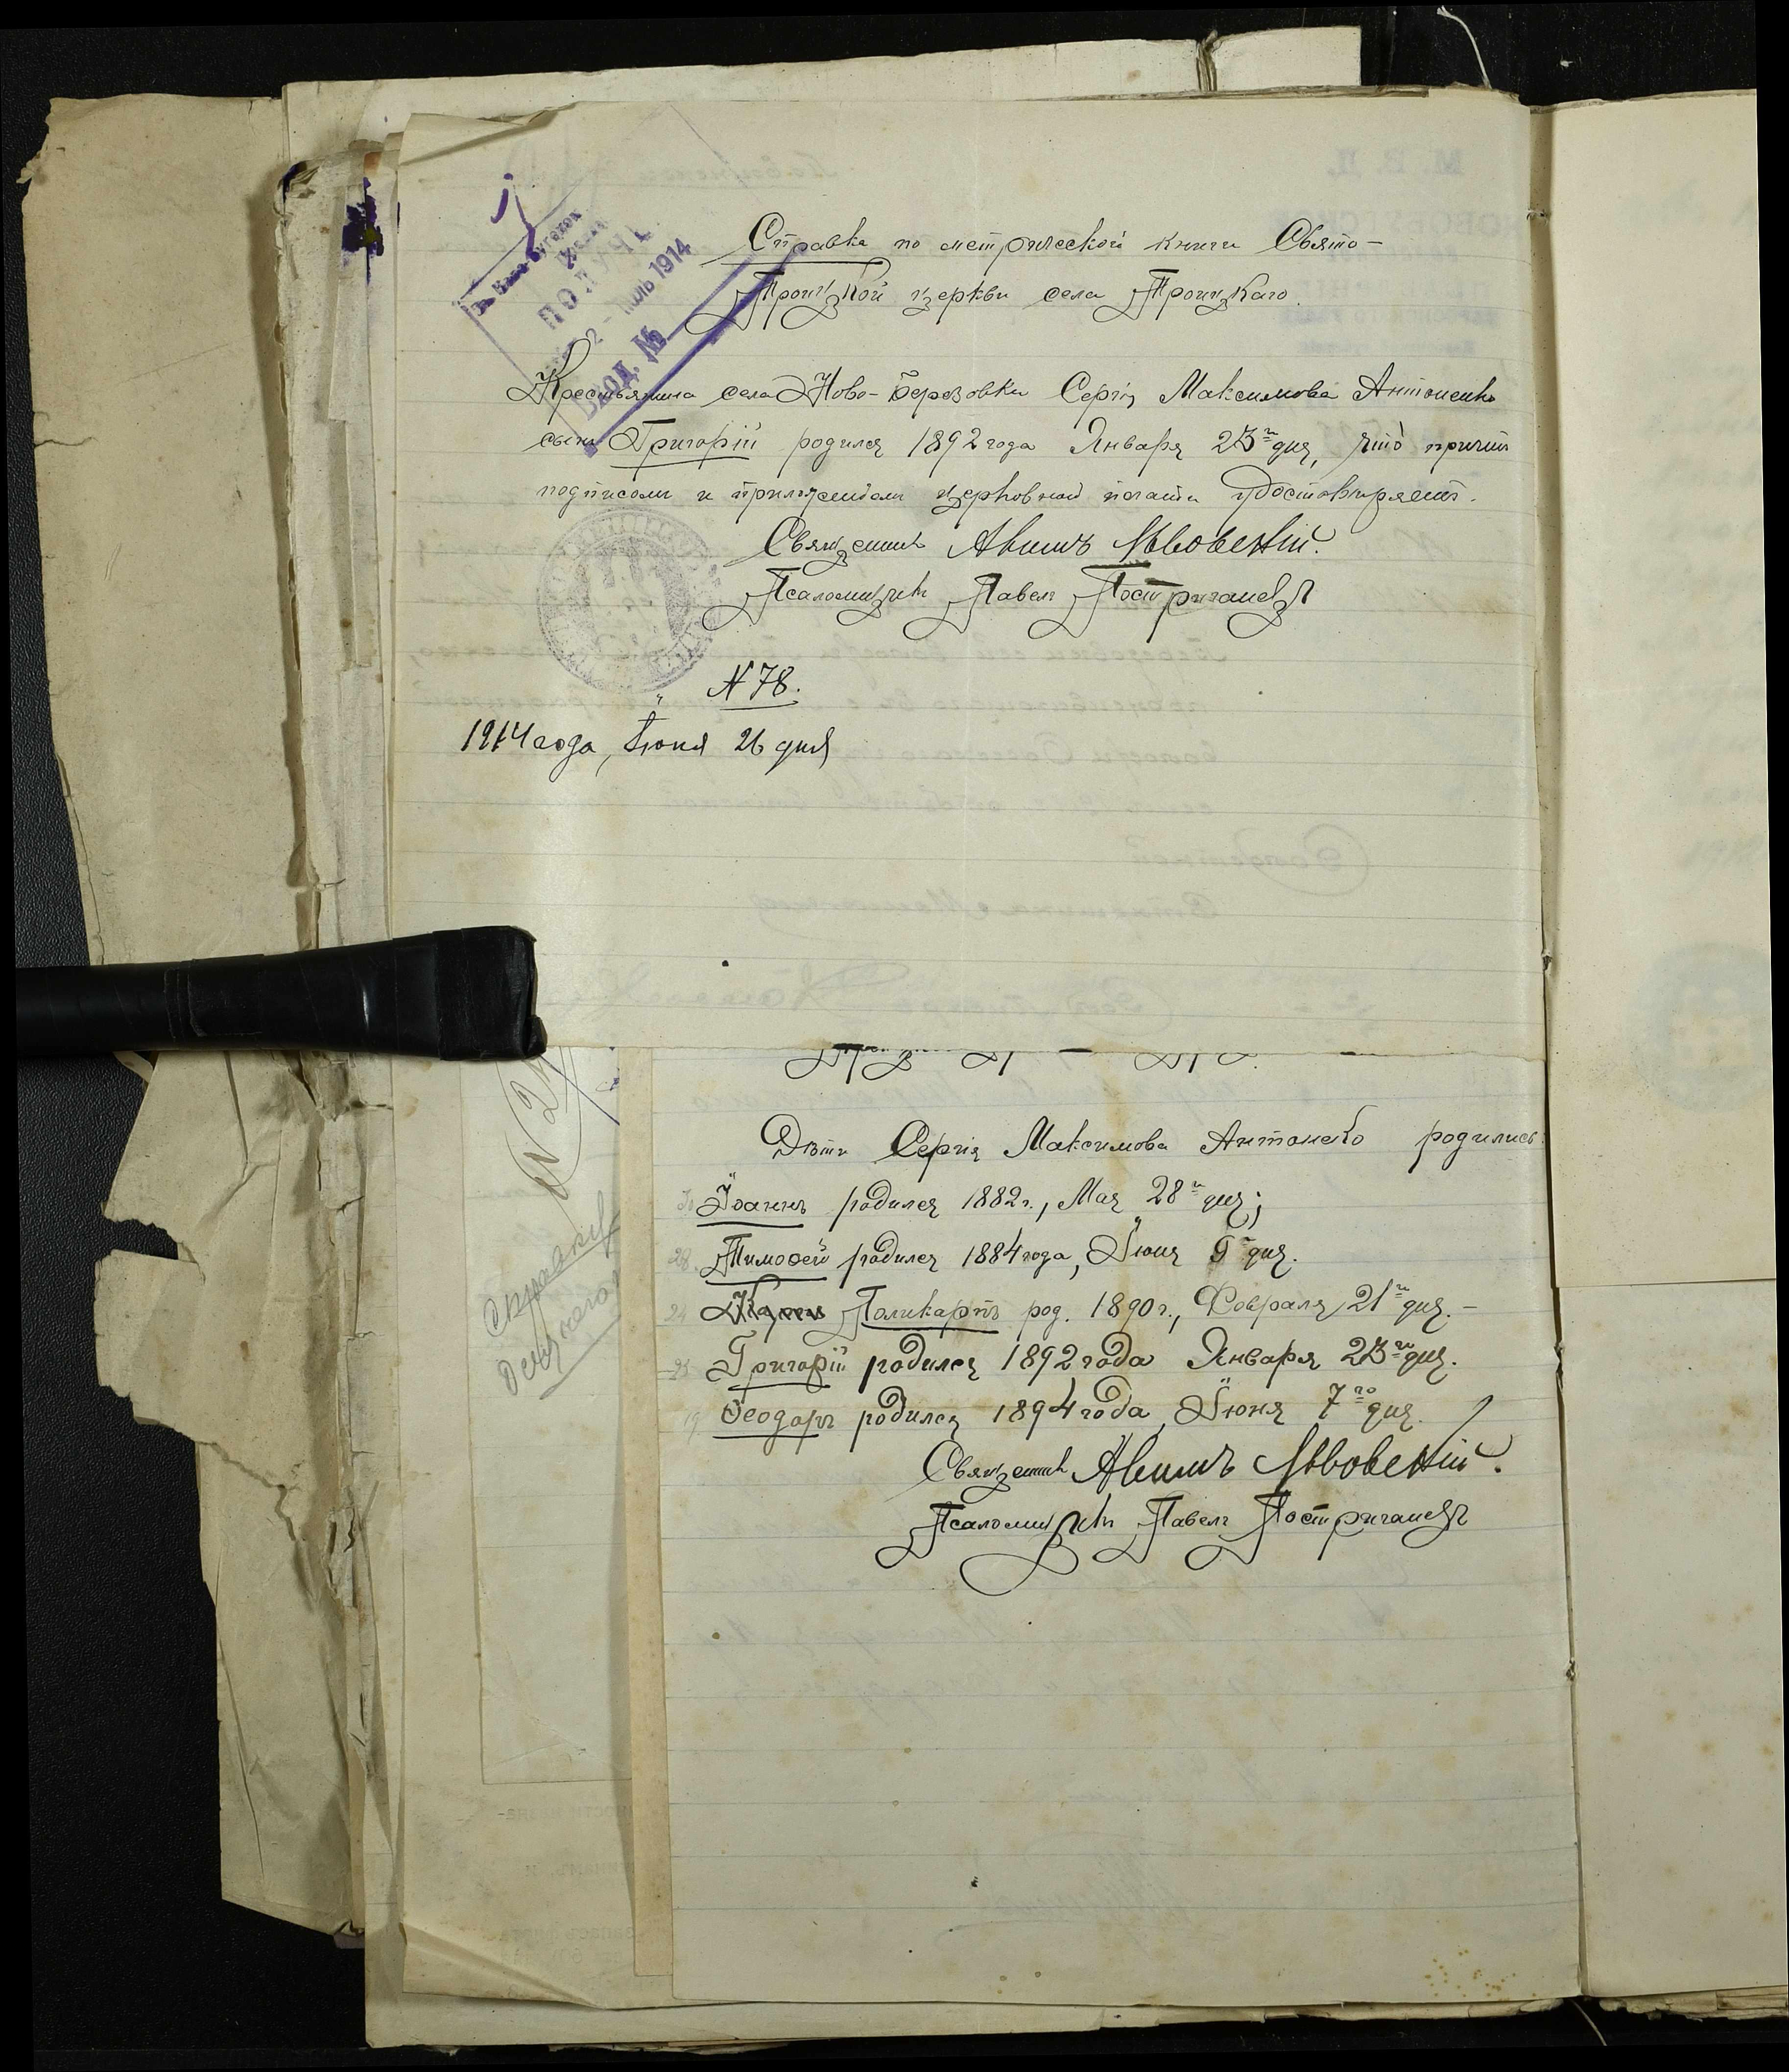 ПОЛУЧ
2 - ІЮЛЬ 1914
ВХОД. №
Справка по метрической книги Свято-
Троицкой церкви села Троицкаго.
Крестьянина села Ново-Березовки Сергія Максимова Антоненко
сынъ Григорій родился 1892 года Января 23го дня, что причтъ
подписомъ и приложеніемъ церковной печати удостовѣряетъ.
Священникъ Авимъ Львовскій.
Псаломщикъ Павелъ
N 78.
1914 года, Іюня 26 дня
Дѣти Сергія Максимова Антоненко родились
Іоаннъ родился 1882 г., Мая 28го дня;
28. Тимоѳей родился 1884 года, Іюня дня.
24 Поликарпъ род. 1890 г., Февраля 21го дня. -
Григорій родился 1892 года Января 23го дня.
19. Ѳеодоръ родился 1894 года, Іюня 7го дня.
Священникъ Авимъ Львовскій.
Псаломщикъ Павелъ
N 2
Справки